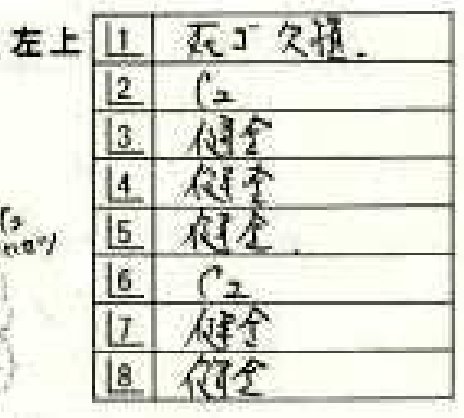 左上
1 死ゴ欠損.
2 C2
3 健全
4 健全
5 健全.
6 C2
7 健全
8 健全
C2